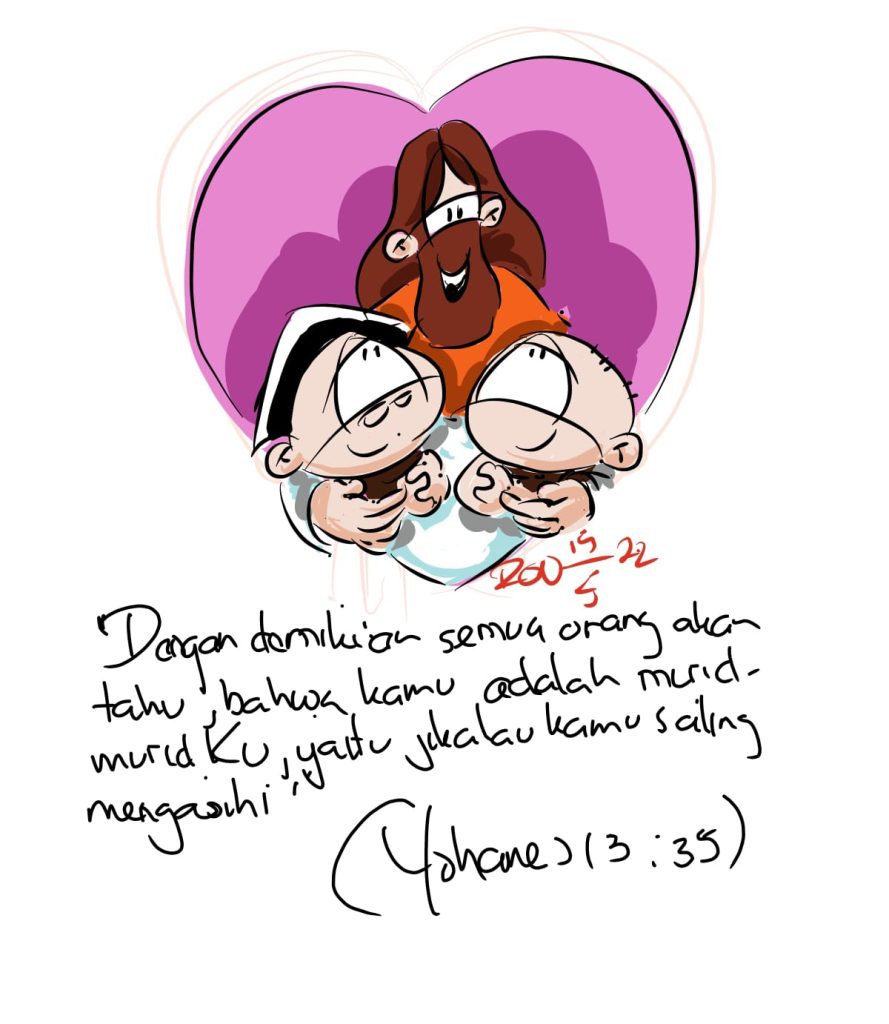 15
5 22
"Dengan demikian semua orang akan
tahu, bahwa kamu adalah murid-
murid Ku, yaitu jikalau kamu saling
mengasihi"
(Yohanes 13:35)